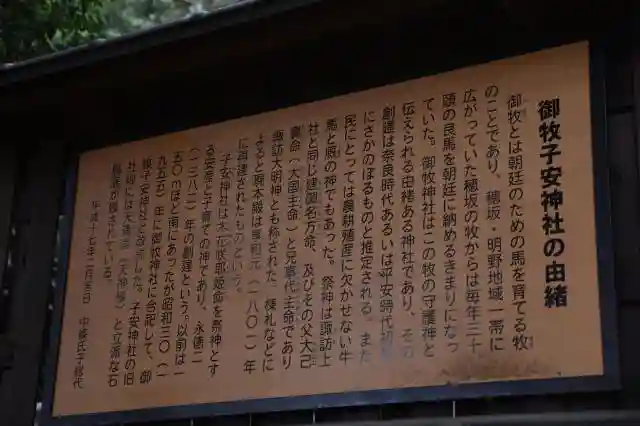 御牧子安神社の由緒
御牧とは朝廷のための馬を育てる牧
のことであり、穂坂・明野地域一帯に
広がっていた穂坂の牧からは毎年三十
頭の良馬を朝廷に納めるきまりになっ
ていた。御牧神社はこの牧の守護神と
伝えられる由緒ある神社であり、その
創建は奈良時代あるいは平安時代初
にさかのぼるものと推定される。また
民にとっては農耕殖産に欠かせない牛
馬と厩の神でもあった。祭神は諏訪上
社と同じ建御名方命、及びその父大己
貴命(大国主命)と兄事代主命であり
諏訪大明神とも称された。棟札などに
よると原本殿は享和元(一八〇一)年
に再建されたものという。
子安神社は木花咲耶姫命を祭神とす
る安産と子育ての神であり、永徳二
(一三八二)年の創建という。以前は一
五〇mほど南にあったが昭和三〇(一
九五五)年に御牧神社に合祀して、御
牧子安神社と改称した。子安神社の旧
社地には天満宮(天神様)と立派な石
が残されている。
平成十七年二月吉日 中條氏子総代